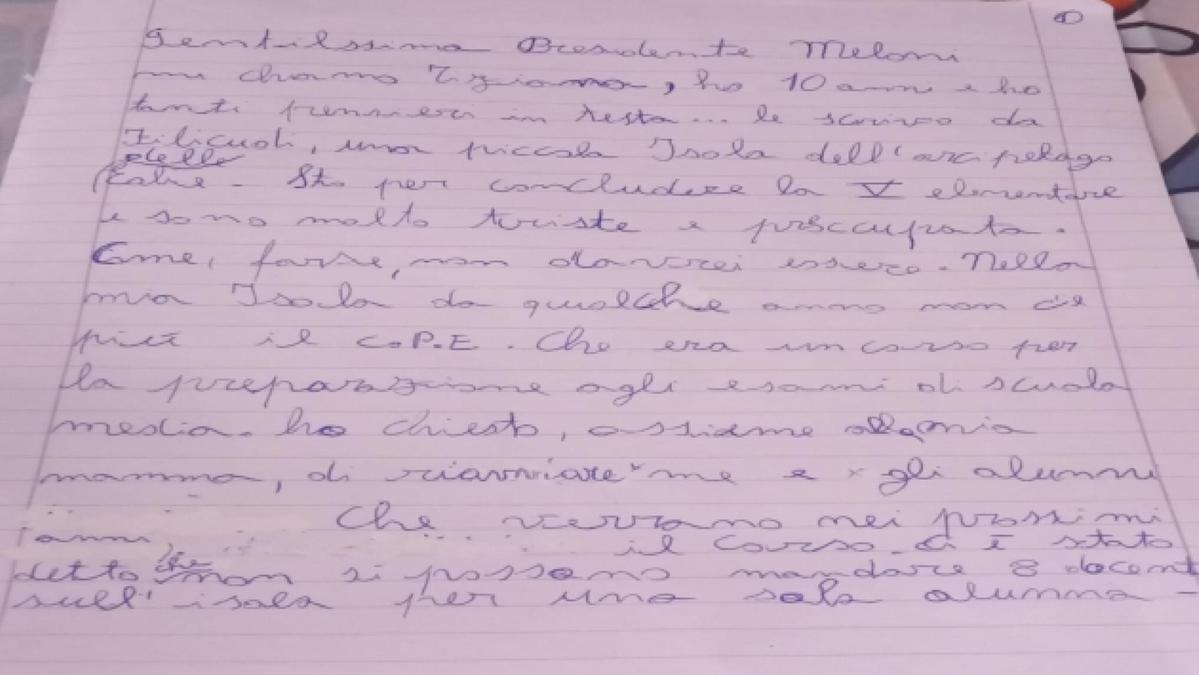 ①
Gentilssima Presidente Meloni
mi chiamo Tiziana, ho 10 anni e ho
tanti pensieri in testa... le scrivo da
Filicudi, una piccola Isola dell'arcipelago
delle
Eolie. Sto per concludere la V elementare
e sono molto triste e preccupata.
Come, forse, non dovrei essere. Nella
mia Isola da qualche anno non c'è
più il C.P.E. Che era un corso per
la preparazione agli esami di scuola
media. ho chiesto, assieme alla mia
mamma, di riavviare x me e x gli alunni
Che verrano nei prossimi
anni, il corso. Ci è stato
detto che non si possono mandare 8 docenti
sull'isola per una sola alunna -